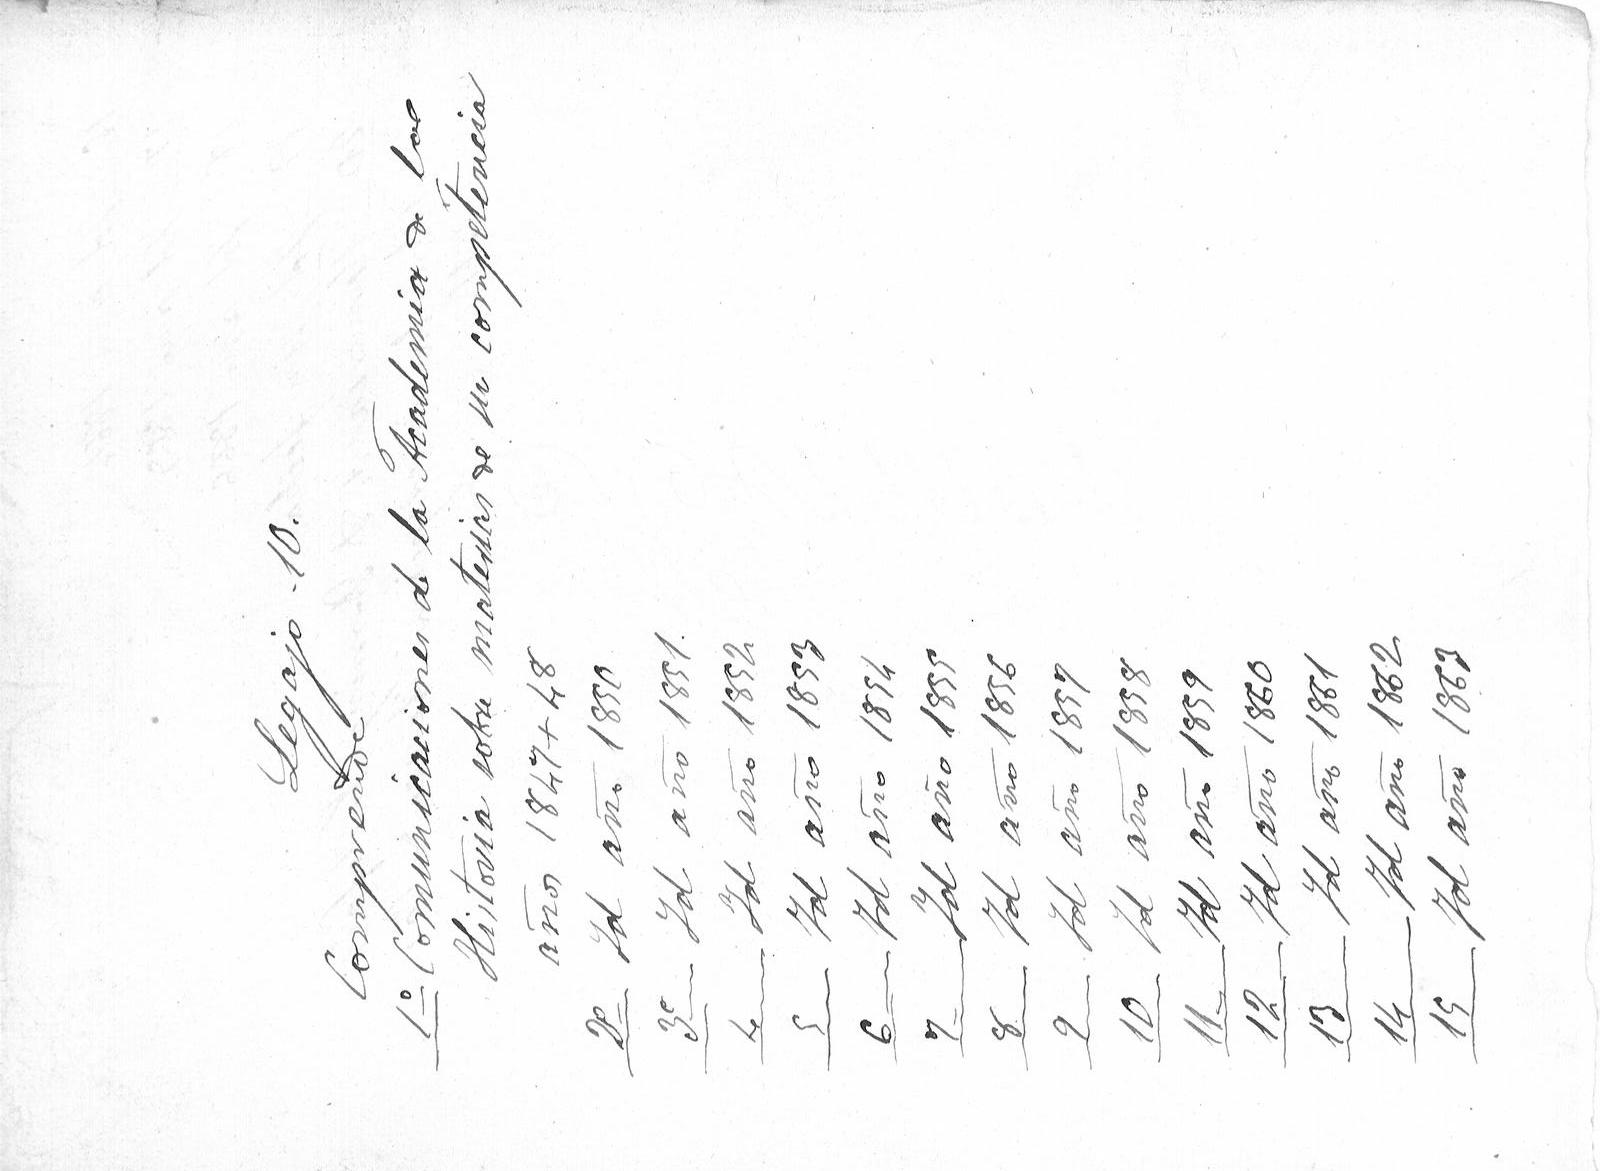 Legajo -10.
Comprende
1º Comunicaciones de la Academia de la
Historia sobre materias de su competencia
años 1847 + 48
2º Id año 1850
3º Id año 1851.
4 Id año 1852
5 Id año 1853
6 Id año 1854
7 Id año 1855
8 Id año 1856
9 Id año 1857
10 Id año 1858
11 Id año 1859
12 Id año 1860
13 Id año 1861
14 Id año 1862
15 Id año 1863